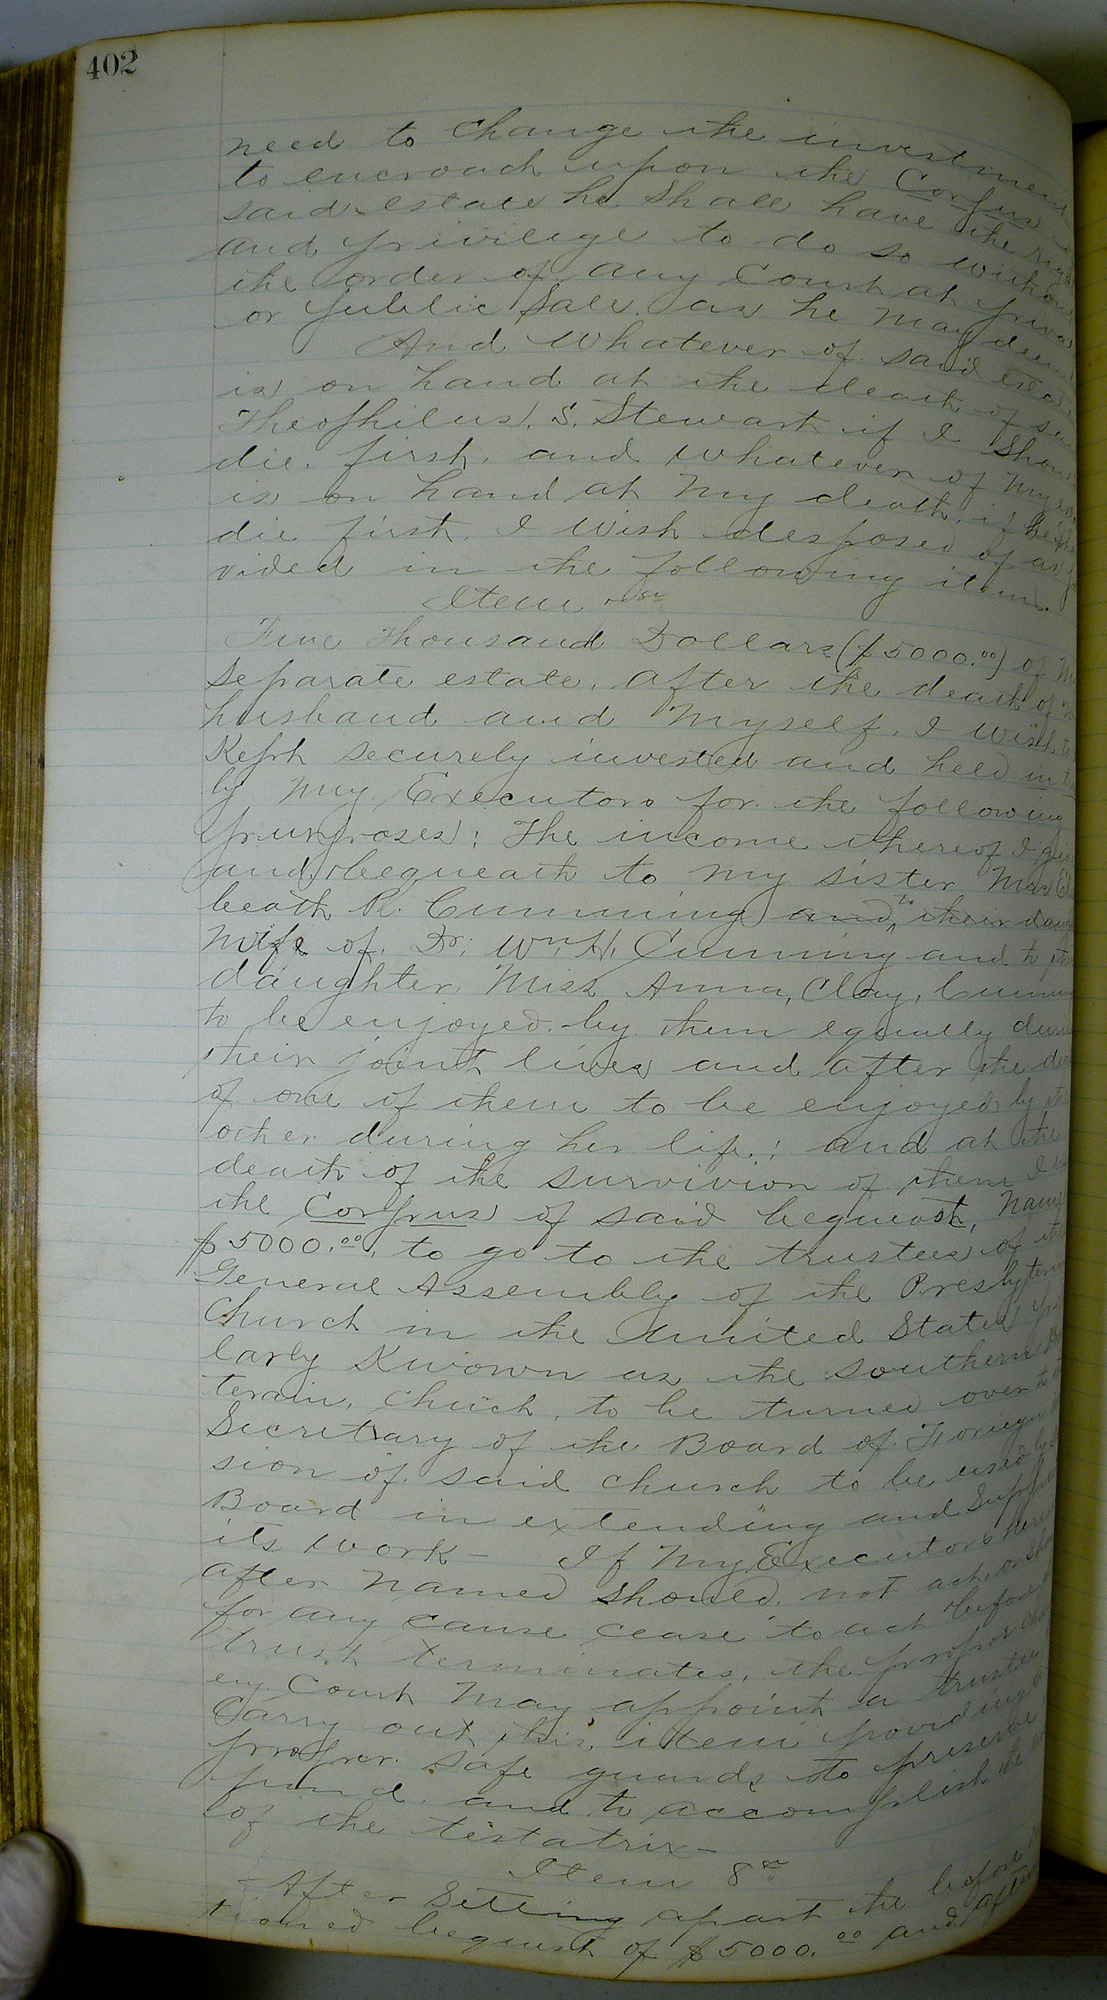 402
need to change the investment
to encroach upon the Corpus
said estate he shall have the rig
and privilege to do so withou
the order of any Court at priva
or public sale, as he may deem
And whatever of said esta
is on hand at the death of sa
Theophilus, S. Stewart if I shou
die, first, and whatever of my es
is on hand at my death, if he
die first, I wish desposed of as
vided in the following item.
Item
Five Thousand Dollars ($5000.00) of M
separate estate, after the death of m
husband and myself, I wish t
Kept securely invested and held in
by my Executors for the following
purposes: The income thereof I giv
and bequeath to my sister Mrs E
beath R. Cumming and, to their daug
wife of Dr. Wm H. Cumming and to
daughter Miss Anna, Clay, Cumm
to be enjoyed by them equally duri
their joint lives and after the de
of one of them to be enjoyed by th
other during her life; and at the
death of the survivion of them I
the Corpus of said bequest, Name
$5000.00, to go to the trustees of the
General Assembly of the Presbyteri
Church in the United States
larly Known as the southern
terain, Chuch, to be turned over to
Secretary of the Board of Foriegn
sion of said church to be used by
Board in extending and Suppo
its work - If my Executors herei
after named should not act, or sho
for any cause cease to act before
trust terminates, the propor
ery Court may appoint a trustee
Carry out this item providing
proper safe guards to preserve
fund and to accomplish the
of the testatrix -
Item 8th
After Setting apart the before
tioned bequest of $5000.00 and after